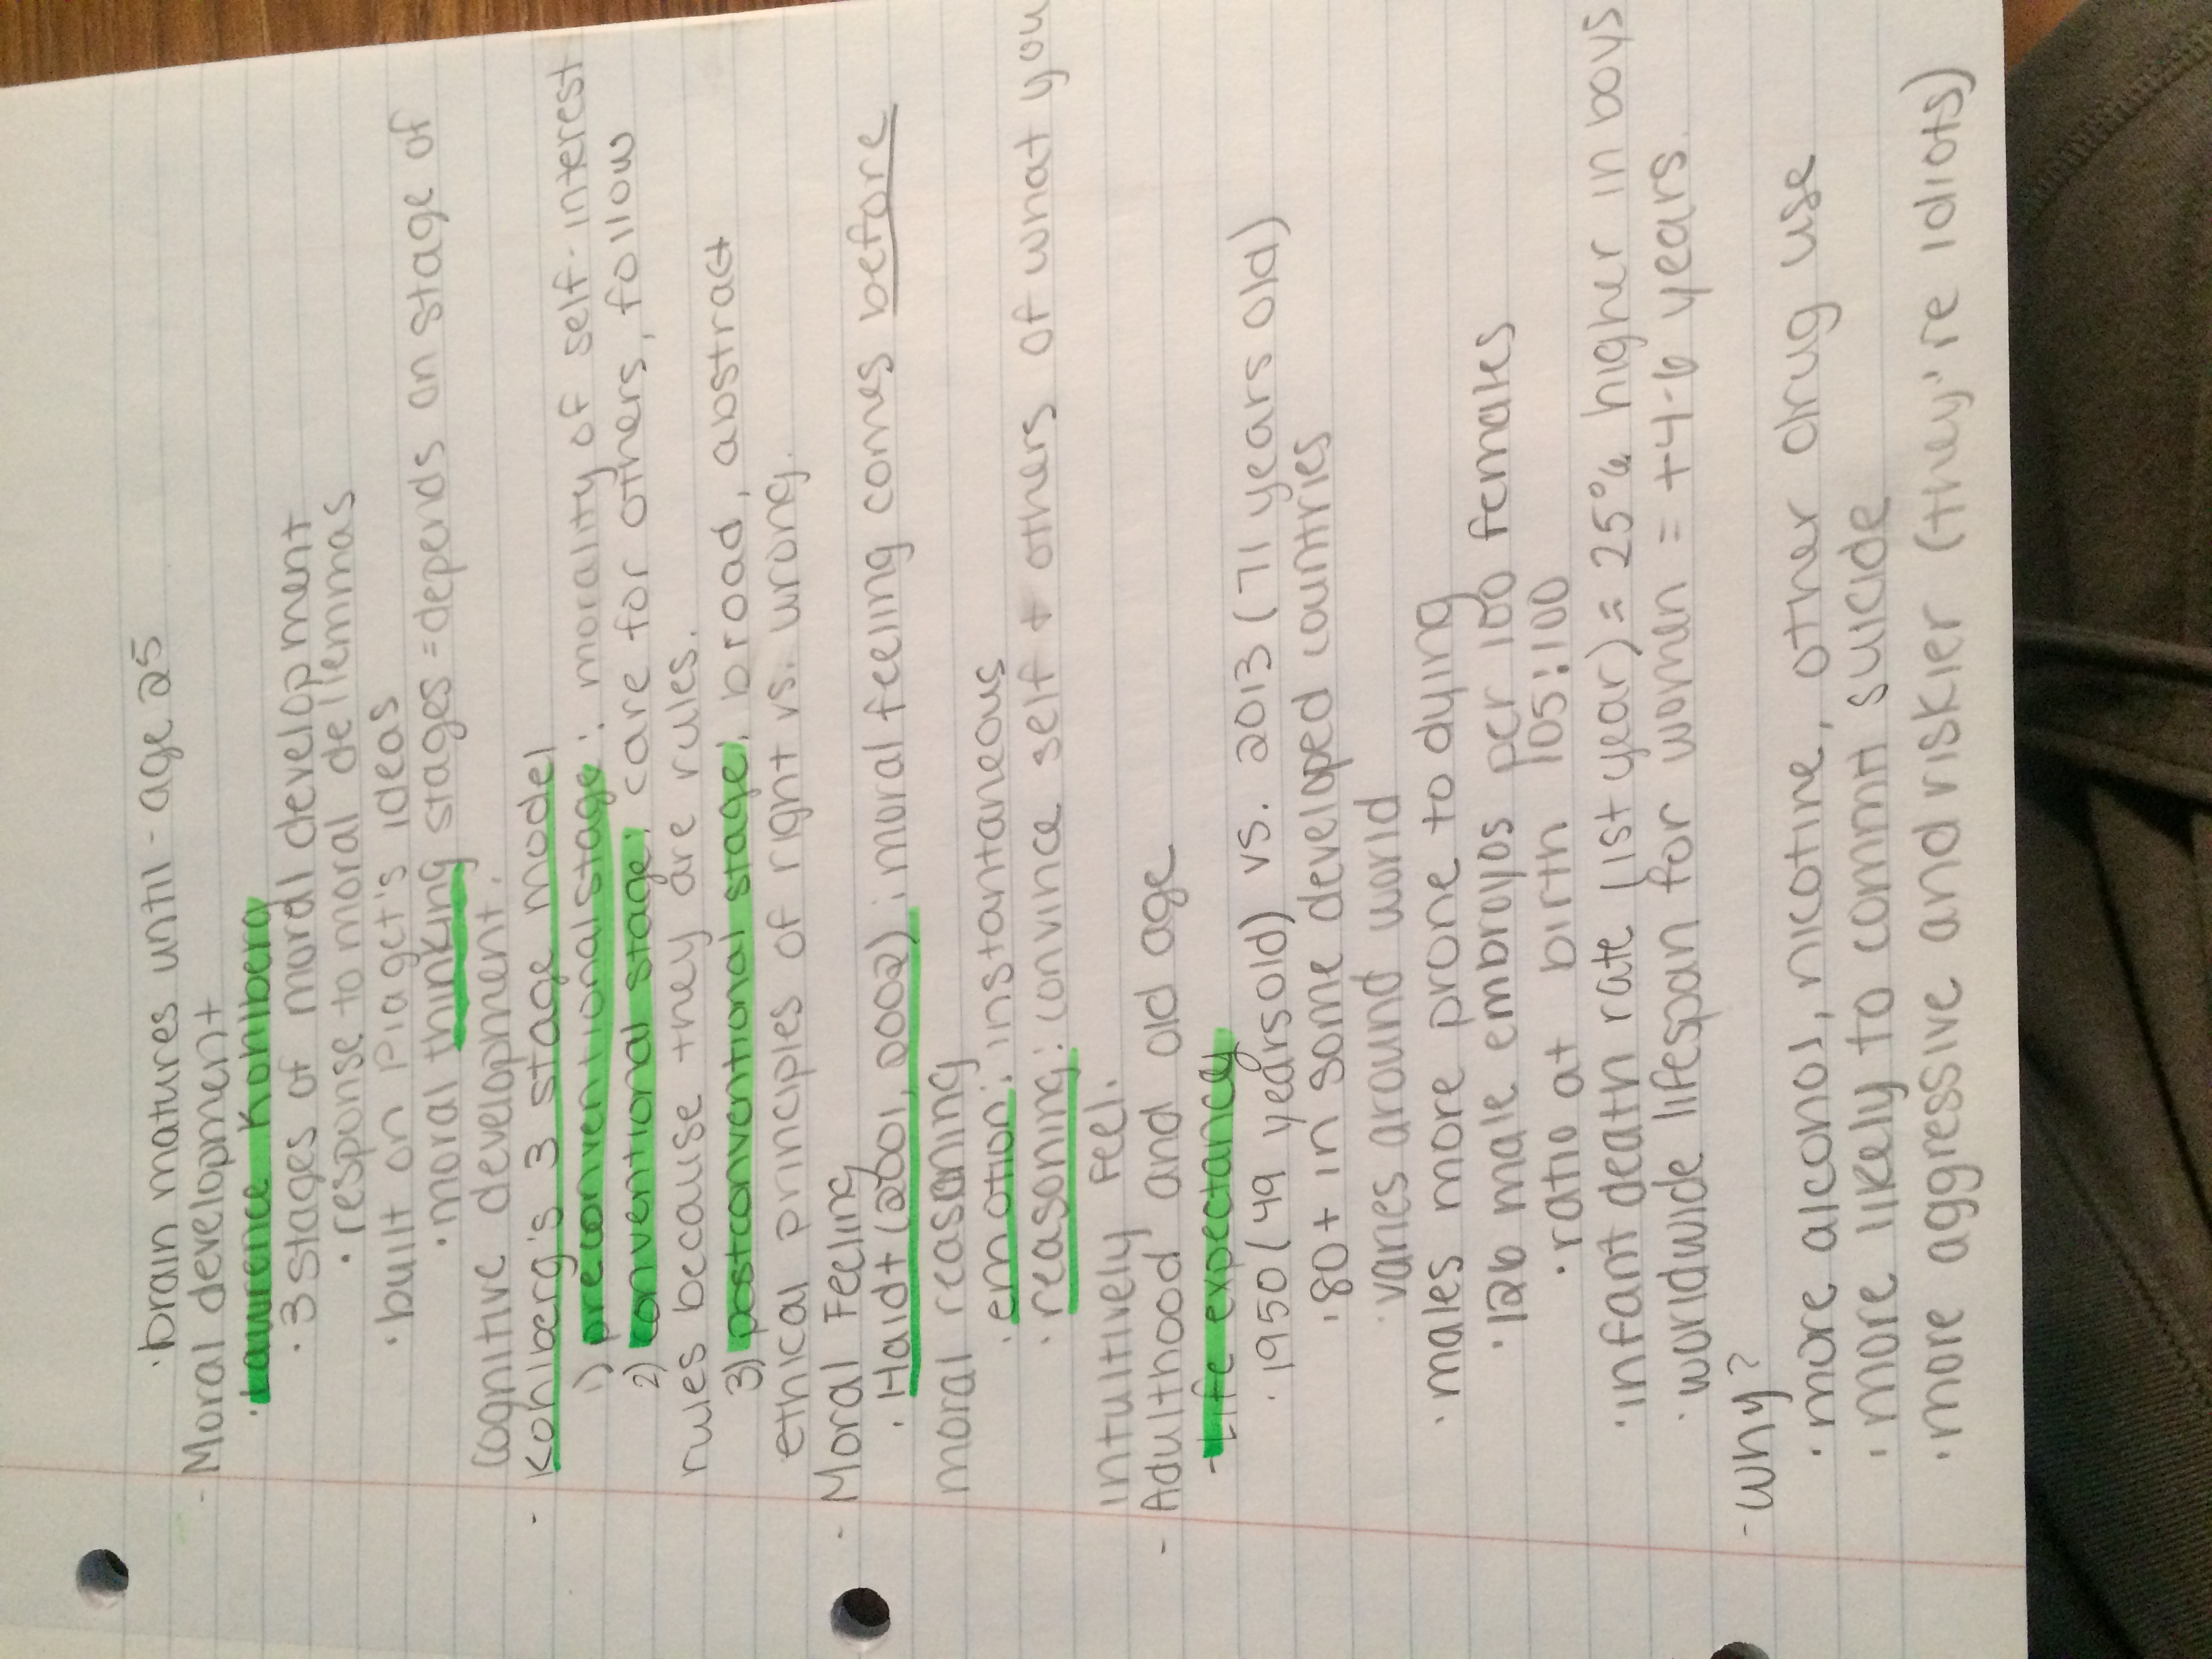 · brain matures until - age 25
- Moral development
· Lawrence Kohlberg
· 3 stages of moral development
· response to moral delemmas
· built on Piaget's ideas
· moral thinking stages = depends on stage of
cognitive development.
- Kohlberg's 3 stage model
1) preconventional stage: morality of self-interest
2) conventional stage: care for others, follow
rules because they are rules.
3) postconventional stage: broad, abstract
ethical principles of right vs. wrong.
- Moral Feeling
· Haidt (2001, 2002): moral feeling comes before
moral reasoning
· emotion: instantaneous
· reasoning: convince self + others of what you
intuitively feel.
- Adulthood and old age
- Life expectancy
· 1950 (49 years old) vs. 2013 (71 years old)
· 80+ in some developed countries
· varies around world
· males more prone to dying
· 126 male embroyos per 100 females
· ratio at birth 105:100
· infant death rate (1st year) = 25% higher in boys
· worldwide lifespan for women = +4-6 years.
- Why?
· more alcohol, nicotine, other drug use
· more likely to commit suicide
· more aggressive and riskier (they're idiots)